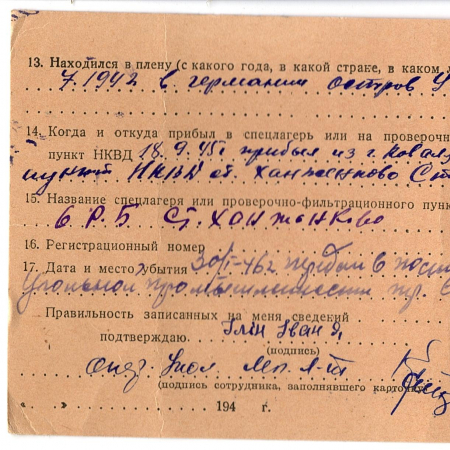 13. Находился в плену (с какого года, в какой стране, в каком
7.1942 в германии остров
14. Когда и откуда прибыл в спецлагерь или на проверочно
пункт НКВД 18.9.45г прибыл из г.
пункт НКВД ст. Ханженково Ст
15. Название спецлагеря или проверочно-фильтрационного пунк
6 Р. Б Ст. ХАНжЕНКОво
16. Регистрационный номер
17. Дата и место убытия 30/I-46г передан в пост
Угольной промышленности тр.
Правильность записанных на меня сведений
подтверждаю. Iван
(подпись)
Опер
(подпись сотрудника, заполнявшего карточку
« » 194 г.